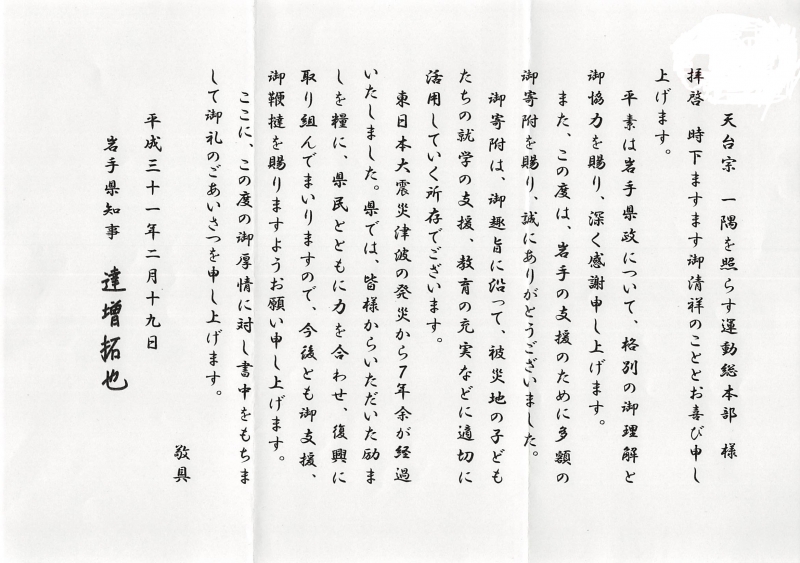 天台宗 一隅を照らす運動総本部 様
拝啓 時下ますます御清祥のこととお喜び申し
上げます。
平素は岩手県政について、格別の御理解と
御協力を賜り、深く感謝申し上げます。
また、この度は、岩手の支援のために多額の
御寄附を賜り、誠にありがとうございました。
御寄附は、御趣旨に沿って、被災地の子ども
たちの就学の支援、教育の充実などに適切に
活用していく所存でございます。
東日本大震災津波の発災から7年余が経過
いたしました。県では、皆様からいただいた励ま
しを糧に、県民とともに力を合わせ、復興に
取り組んでまいりますので、今後とも御支援、
御鞭撻を賜りますようお願い申し上げます。
ここに、この度の御厚情に対し書中をもちま
して御礼のごあいさつを申し上げます。
敬具
平成三十一年二月十九日
岩手県知事 達増拓也